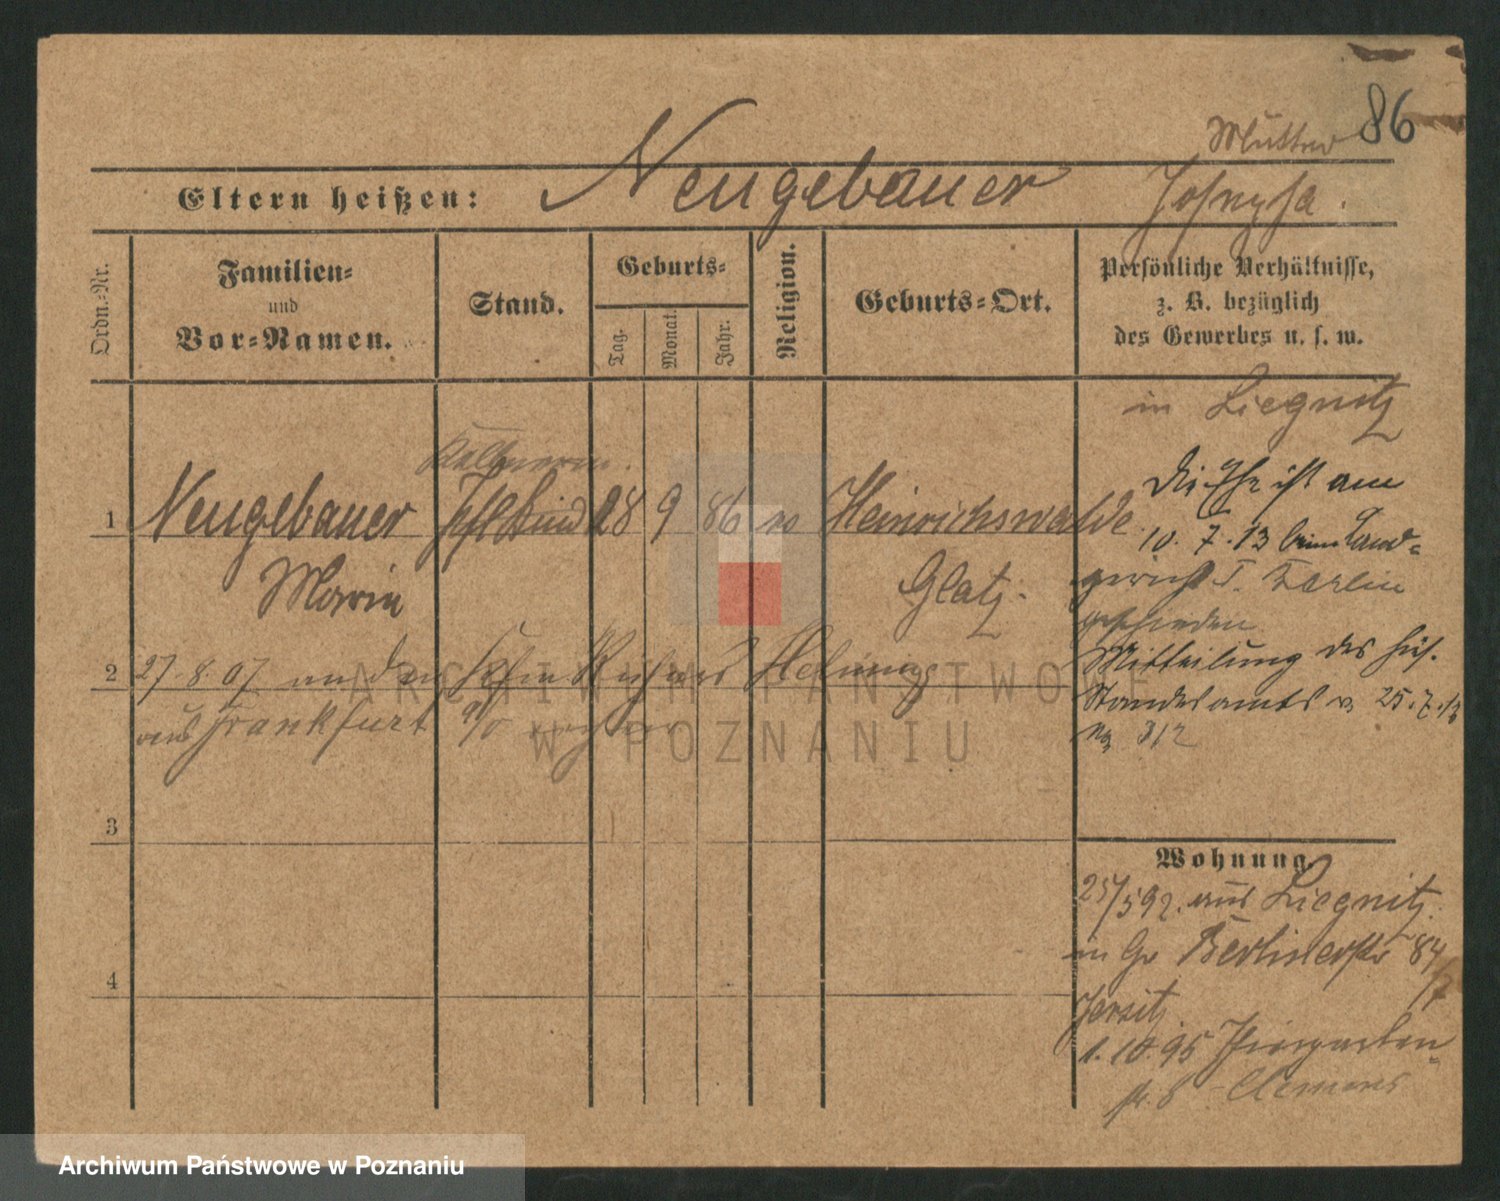 86
Mutter
Eltern heißen: Neugebauer Josepha.
Ordn.-Nr.
Familien-
und
Vor-Namen.
Stand.
Geburts-
Tag.
Monat.
Jahr.
Religion.
Geburts-Ort.
Persönliche Verhältnisse,
z. B. bezüglich
des Gewerbes u. s. w.
in Liegnitz
Kellnerin.
1 Neugebauer Pflkind 28 9 86 Heinrichswalde
Marie
Glatz.
Die Ehe ist am
10. 7. 13 beim Land-
gericht I. Berlin
geschieden
Mitteilung des
Standesamts v. 25. 7. 13
No 312
2 27. 8. 07 an den
aus Frankfurt
3
4
Wohnung.
25/5 92. aus Liegnitz.
in Berlinerstr 84
Jersitz
1. 10. 95 Thiergarten-
str. 6 Clemens
ARCHIWUM PAŃSTWOWE
W POZNANIU
Archiwum Państwowe w Poznaniu